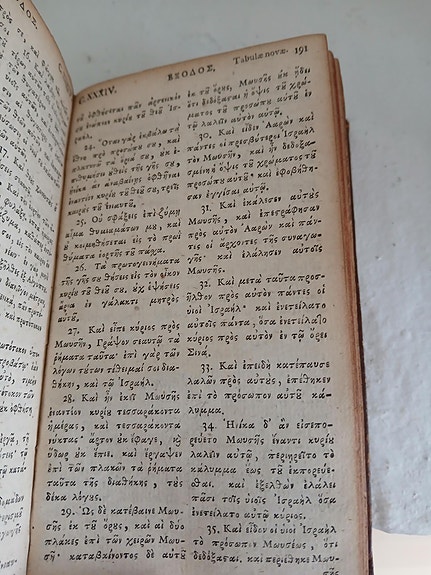 C. XXXIV. ΕΞΟΔΟΣ. Tabulæ novæ. 191
σȣ ὀφθήσεται πᾶν ἀρσενικόν
σȣ ἐνώπιον κυρίȣ τȣ͂ Θεȣ͂ Ἰσ-
ραήλ.
24. Ὅταν γὰρ ἐκβάλω τὰ
ἔθνη πρὸ προσώπȣ σȣ, καὶ
πλατυνῶ τὰ ὅριά σȣ, ȣ̓κ ἐ-
πιθυμήσει ȣ̓θεὶς τῆς γῆς σȣ,
ἡνίκα ἂν ἀναβαίνῃς ὀφθῆναι
ἐναντίον κυρίȣ τȣ͂ Θεȣ͂ σȣ, τρεῖς
καιρȣ̀ς τȣ͂ ἐνιαυτȣ͂.
25. Οὐ σφάξεις ἐπὶ ζύμῃ
αἷμα θυσιασμάτων μȣ, καὶ
ȣ̓ κοιμηθήσεται εἰς τὸ πρωῒ
θύματα ἑορτῆς τȣ͂ πάσχα.
26. Τὰ πρωτογεννήματα
τῆς γῆς σȣ θήσεις εἰς τὸν οἶκον
κυρίȣ τȣ͂ Θεȣ͂ σȣ. ȣ̓χ ἑψήσεις
ἄρνα ἐν γάλακτι μητρὸς
αὐτȣ͂.
27. Καὶ εἶπε κύριος πρὸς
Μωυσῆν, Γράψον σεαυτῷ τὰ
ῥήματα ταῦτα· ἐπὶ γὰρ τῶν
λόγων τȣ́των τέθειμαί σοι δια-
θήκην, καὶ τῷ Ἰσραήλ.
28. Καὶ ἦν ἐκεῖ Μωυσῆς
ἐναντίον κυρίȣ τεσσαράκοντα
ἡμέρας, καὶ τεσσαράκοντα
νύκτας· ἄρτον ȣ̓κ ἔφαγε, ϗ
ὕδωρ ȣ̓κ ἔπιε, καὶ ἔγραψεν
ἐπὶ τῶν πλακῶν τὰ ῥήματα
ταῦτα τῆς διαθήκης, τȣ̀ς
δέκα λόγȣς.
29. Ὡς δὲ κατέβαινε Μωυ-
σῆς ἐκ τȣ͂ ὄρȣς, καὶ αἱ δύο
πλάκες ἐπὶ τῶν χειρῶν Μωυ-
σῆ· καταβαίνοντος δὲ αὐτȣ͂
ἐκ τȣ͂ ὄρȣς, Μωυσῆς ȣ̓κ ᾔδει
ὅτι δεδόξασται ἡ ὄψις τȣ͂ χρώ-
ματος τȣ͂ προσώπȣ αὐτȣ͂ ἐν
τῷ λαλεῖν αὐτὸν αὐτῷ.
30. Καὶ εἶδεν Ἀαρὼν καὶ
πάντες οἱ πρεσβύτεροι Ἰσραὴλ
τὸν Μωυσῆν, καὶ ἦν δεδοξα-
σμένη ἡ ὄψις τȣ͂ χρώματος τȣ͂
προσώπȣ αὐτȣ͂· καὶ ἐφοβήθη-
σαν ἐγγίσαι αὐτῷ.
31. Καὶ ἐκάλεσεν αὐτȣ̀ς
Μωυσῆς, καὶ ἐπεστράφησαν
πρὸς αὐτὸν Ἀαρὼν καὶ πάν-
τες οἱ ἄρχοντες τῆς συναγω-
γῆς· καὶ ἐλάλησεν αὐτοῖς
Μωυσῆς.
32. Καὶ μετὰ ταῦτα προσ-
ῆλθον πρὸς αὐτὸν πάντες οἱ
υἱοὶ Ἰσραήλ· καὶ ἐνετείλατο
αὐτοῖς πάντα, ὅσα ἐνετείλατο
κύριος πρὸς αὐτὸν ἐν τῷ ὄρει
Σινᾶ.
33. Καὶ ἐπειδὴ κατέπαυσε
λαλῶν πρὸς αὐτȣ̀ς, ἐπέθηκεν
ἐπὶ τὸ πρόσωπον αὐτȣ͂ κά-
λυμμα.
34. Ἡνίκα δ' ἂν εἰσεπο-
ρεύετο Μωυσῆς ἔναντι κυρίȣ
λαλεῖν αὐτῷ, περιῃρεῖτο τὸ
κάλυμμα ἕως τȣ͂ ἐκπορεύε-
σθαι. καὶ ἐξελθὼν ἐλάλει
πᾶσι τοῖς υἱοῖς Ἰσραὴλ ὅσα
ἐνετείλατο αὐτῷ κύριος.
35. Καὶ εἶδον οἱ υἱοὶ Ἰσραὴλ
τὸ πρόσωπον Μωυσέως, ὅτι
δεδόξασαι. καὶ περιέθηκε Μωυ-
σῆς